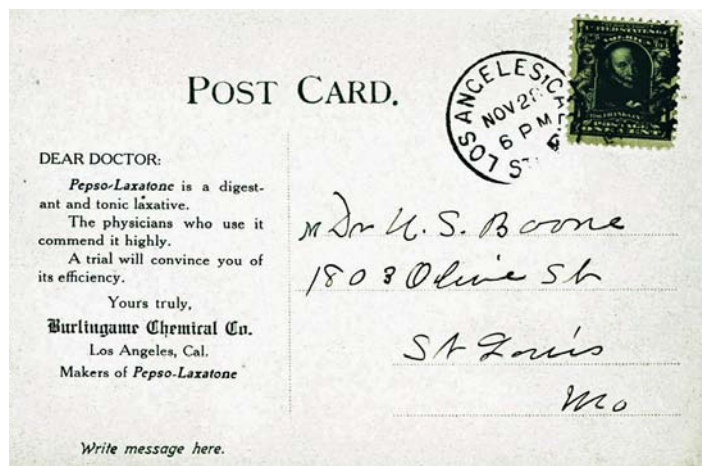 POST CARD.
LOS ANGELES, CAL.
NOV 28
6 PM
UNITED STATES OF
AMERICA
FRANKLIN
POSTAGE
ONE CENT
DEAR DOCTOR:
Pepso-Laxatone is a digest-
ant and tonic laxative.
The physicians who use it
commend it highly.
A trial will convince you of
its efficiency.
Yours truly,
Burlingame Chemical Co.
Los Angeles, Cal.
Makers of Pepso-Laxatone
Write message here.
Dr U. S. Boone
1803 Olive St
St Louis
Mo